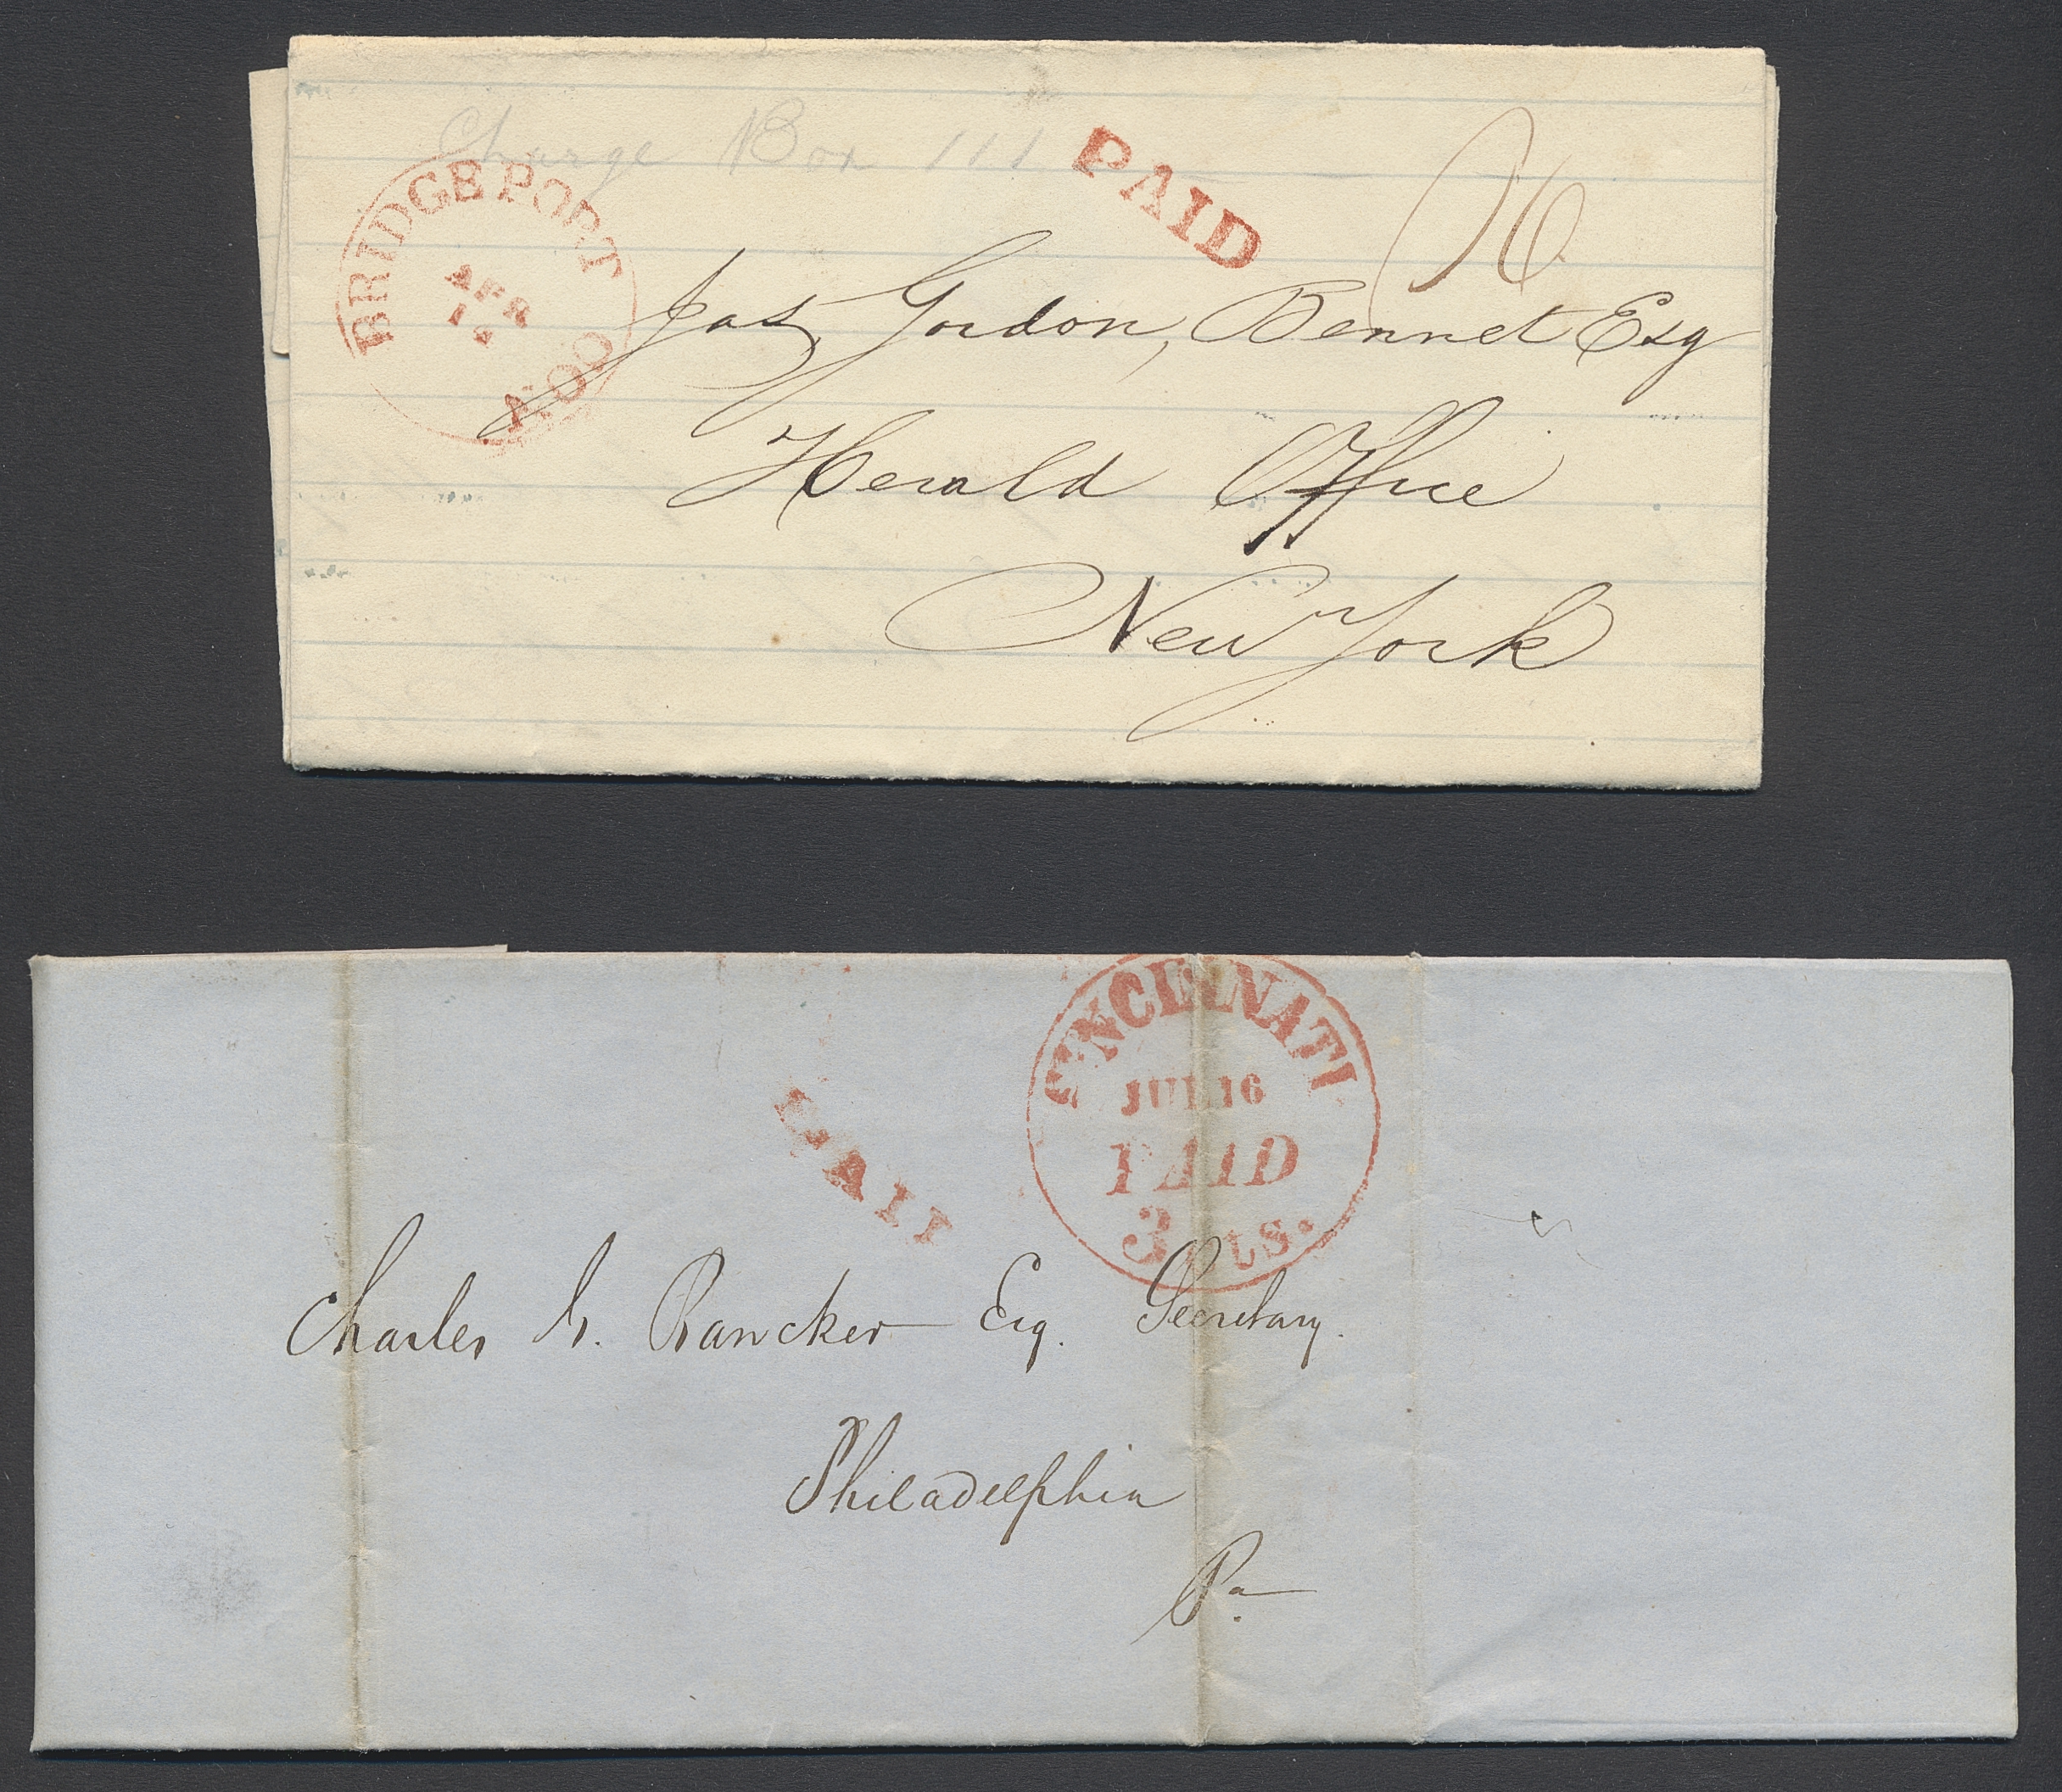 Charge Box 111
PAID
BRIDGEPORT
APR
Jas, Gordon, Bennet Esq
Herald Office
New York
CINCINNATI
JUL 16
PAID
3 cts.
PAID
Charles Rancker Esq. Secretary.
Philadelphia
Pa